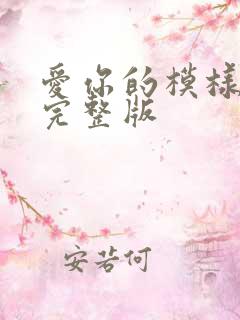 爱你的模样
完整版
安若何